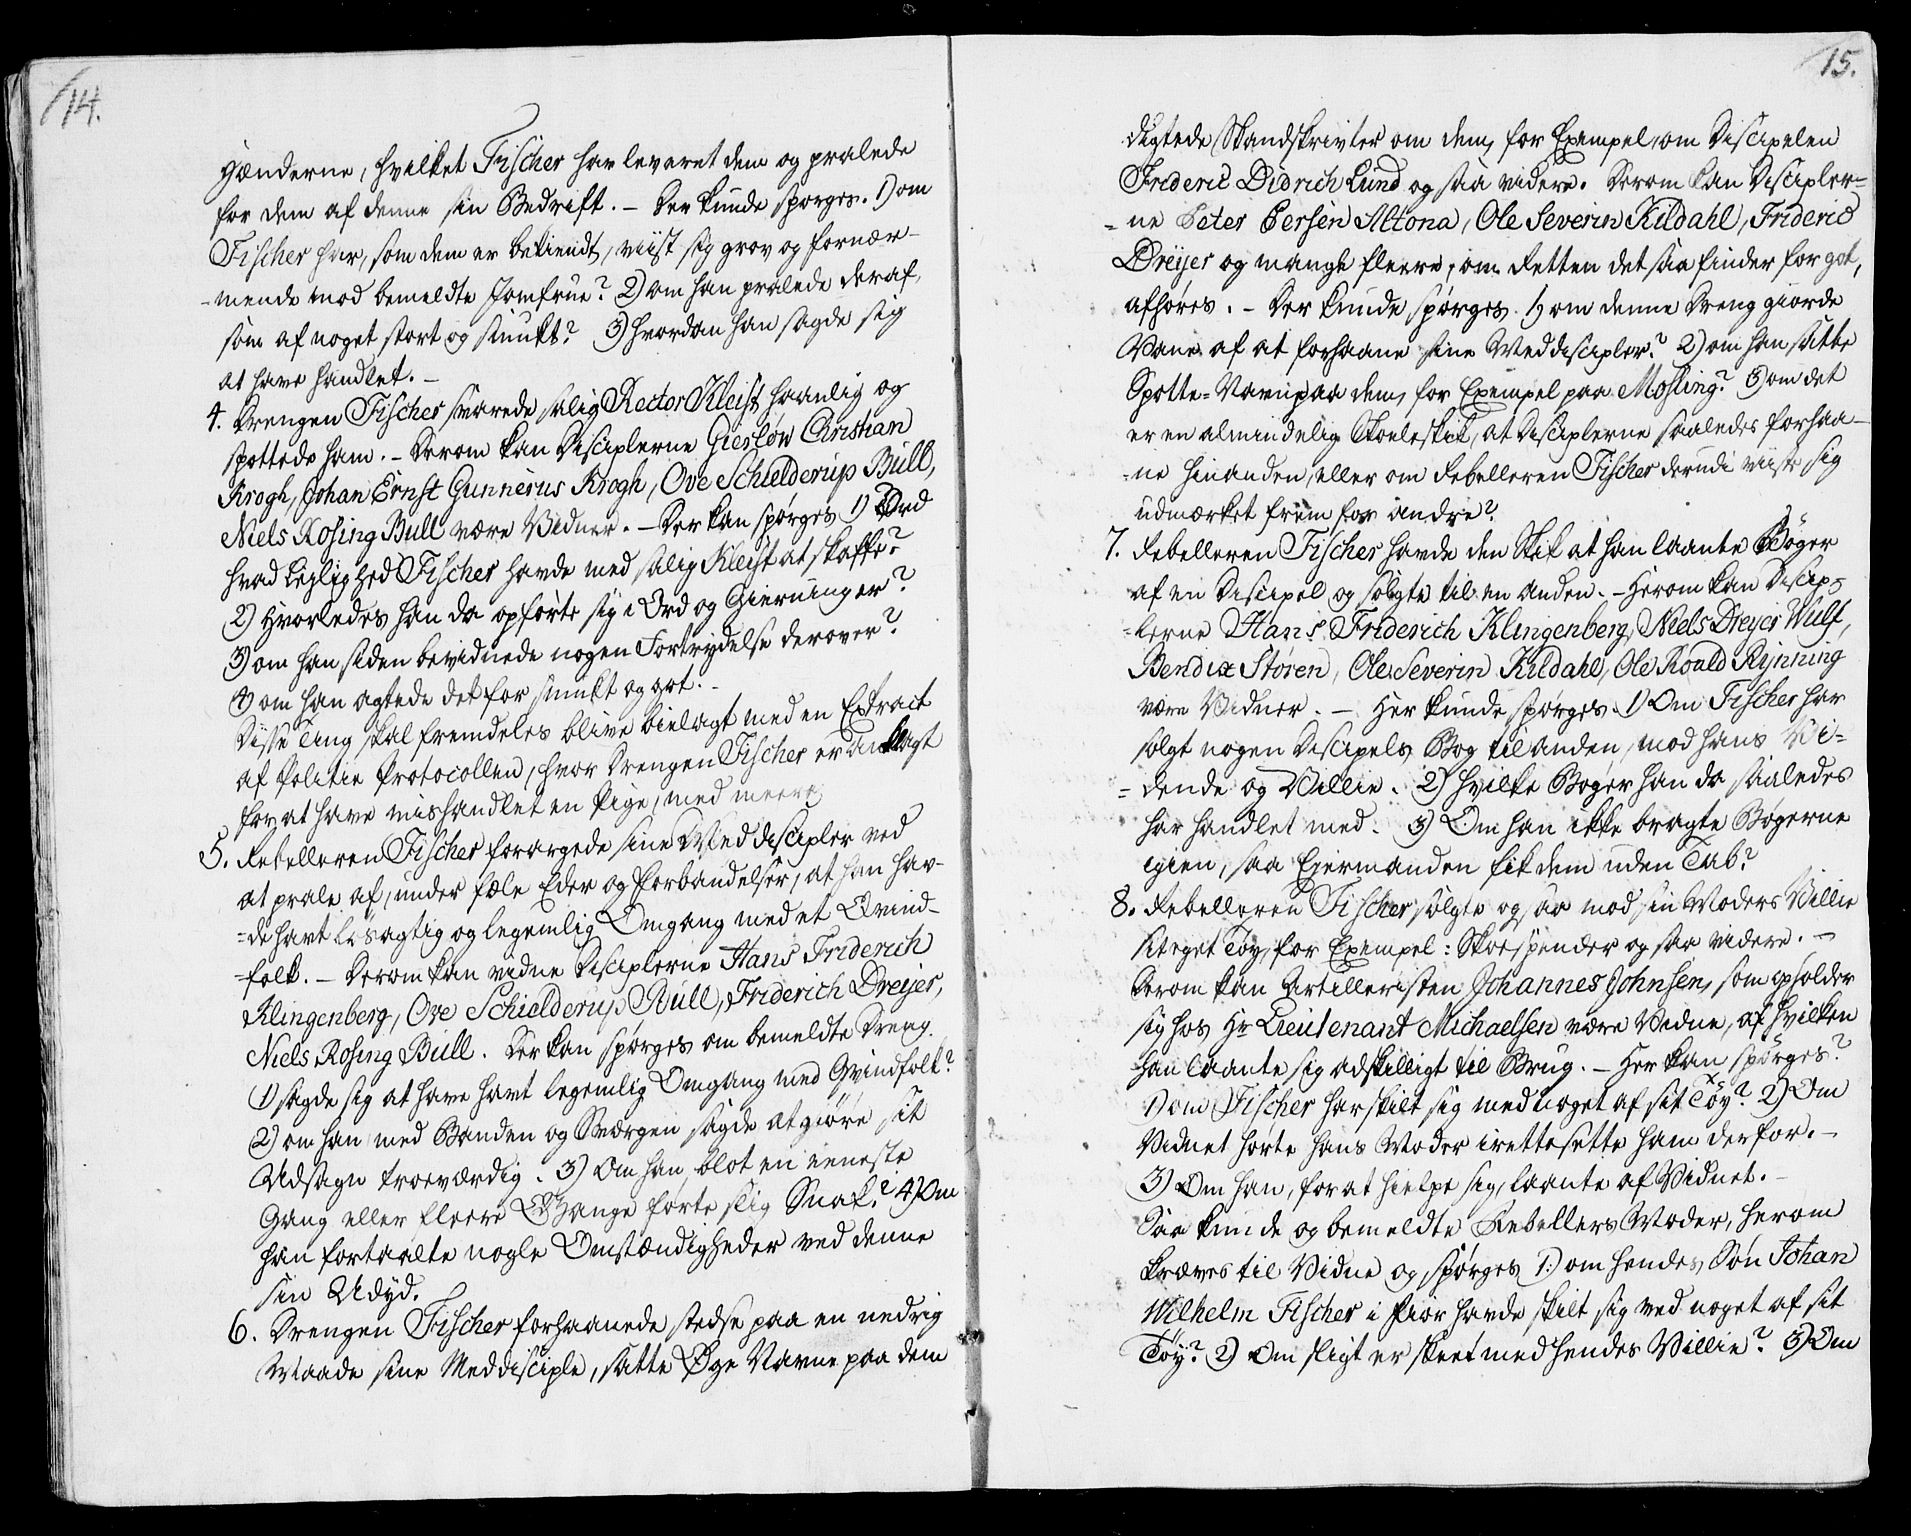 14.
Hænderne, hvilket Fischer har levaret dem og pralede
for dem af denne sin Bedrift. – Der kunde spørges. 1) om
Fischer har, som dem er bekiendt, viist sig grov og fornær-
-mende mod bemeldte Jomfrue? 2) om han pralede deraf,
som af noget stort og smukt? 3) hvordan han sagde sig
at have handlet. –
4. Drengen Fischer svarede salig Rector Kleist haanlig og
spottede ham. – Derom kan Disciplerne Gierløw Christian
Krogh, Johan Ernst Gunnerus Krogh, Ove Schielderup Bull,
Niels Rosing Bull være Vidner. – Der kan spørges 1) Ord
hvad Leylighed Fischer havde med salig Kleist at skaffe?
2) Hvorledes han da opførte sig i Ord og Gierninger?
3) om han siden bevidnede nogen Fortrydelse derover?
4) om han agtede det for smukt og got. –
Disse Ting skal fremdeles blive bielagt med en Extract
af Politie Protocollen, hvor Drengen Fischer er anklagt
for at have mishandlet en Pige, med meere
5. Rebelleren Fischer forargede sine Meddiscipler ved
at prale af, under fæle Eder og Forbandelser, at han hav-
=de havt Løsagtig og legemlig Omgang med et Qvind-
-folk. – Derom kan vidne Disciplerne Hans Friderich
Klingenberg, Ove Schielderup Bull, Friderich Dreyer,
Niels Rosing Bull. Der kan spørges om bemeldte Dreng.
1) sagde sig at have havt legemlig Omgang med Qvindfolk?
2) om han med Banden og Sværgen sagde at giøre sit
Udsagn troeværdig. 3) Om han, blot en eeneste
Gang eller fleere Gange førte slig Snak? 4) Om
han fortaalte nogle Omstændigheder ved denne
sin Udyd.
6. Drengen Fischer forhaanede stedse paa en nedrig
Maade sine Meddisciple, satte Øge Navne paa dem
15.
digtede Skandskrivter om dem, for Exempel, om Discipelen
Frideric Didrich Lund og saa videre. Derom kan Discipler=
=ne Peter Persen Altona, Ole Severin Kildahl, Frideric
Dreyer og mange fleere, om Retten det saa finder for got,
afhøres. – Der kunde spørges. 1) om denne Dreng giorde
Vane af at forhaane sine Meddiscipler? 2) om han satte
Spotte=Navn paa dem, for Exempel paa Mosling? 3) om det
er en almindelig Skoleskik, at Disciplerne saaledes forhaa-
=ne hinanden, eller om Rebelleren Fischer derudi viiste sig
udmærket frem for andre?
7. Rebelleren Fischer havde den Skik at han laante Bøger
af en Discipel og solgte til en anden. – Herom kan Discip=
=lerne Hans Friderich Klingenberg, Niels Dreyer Wulf,
Bendix Støren, Ole Severin Kildahl, Ole Roald Rynning
være Vidner. – Her kunde spørges 1) Om Fischer har
solgt nogen Discipels Bog til anden, mod hans Vi=
=dende og Villie. 2) Hvilke Bøger han da saaledes
har handlet med. 3) Om han ikke bragte Bøgerne
igien, saa Eiermanden fik dem uden Tab?
8. Rebelleren Fischer solgte og saa mod sin Moders Villie
sit eget Tøy, for Exempel: Skoespender og saa videre. –
Derom kan Artilleristen Johannes Johnsen, som opholder
sig hos Hr Lieutenant Michaelsen være Vidne, af hvilken
han laante sig adskilligt til Brug. – Her kan spørges?
1) om Fischer har skilt sig med noget af sit Tøy? 2) Om
Vidnet hørte hans Moder irettesette ham derfor. –
3) Om han, for at hielpe sig, laante af Vidnet. –
Saa kunde og bemeldte Rebellers Moder, herom
kræves til Vidne og spørges 1.) om hendes Søn Johan
Wilhelm Fischer i Fior havde skilt sig ved noget af sit
Tøy? 2) Om sligt er skeet med hendes Villie? 3) Om